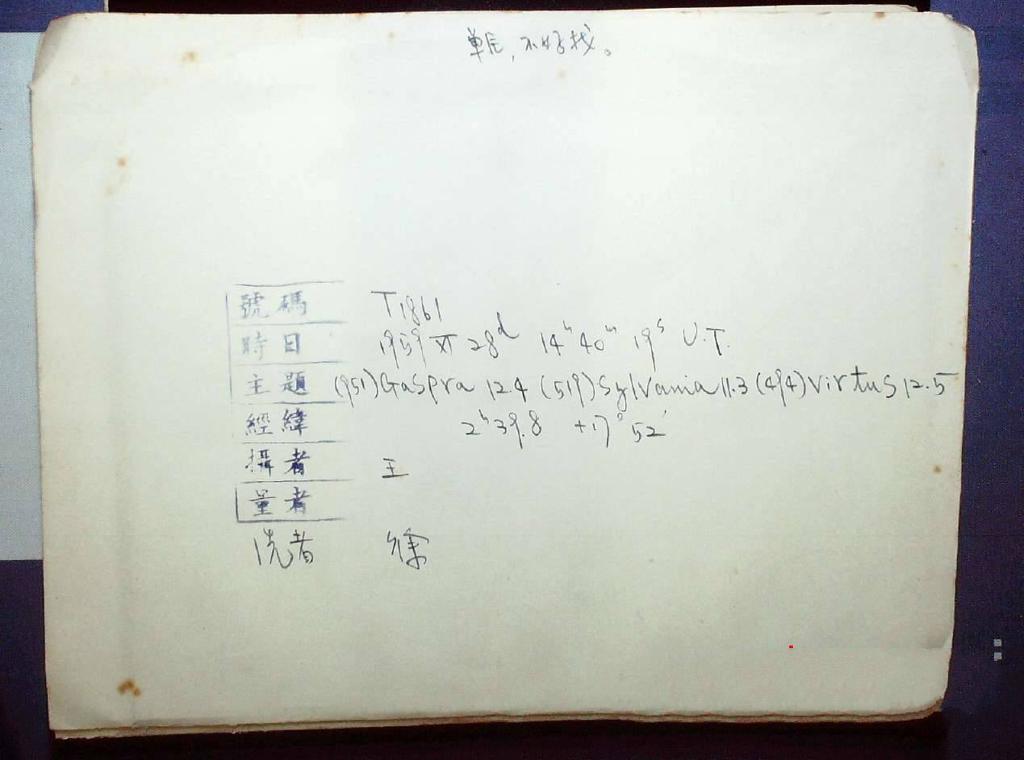 單星,不好找。
號碼 T1861
時日 1959 XI 28d 14h 40m 19s U.T.
主題 (951)Gaspra 12.4 (519)Sylvania 11.3 (494)Virtus 12.5
經緯 2h39.8 +17°52'
攝者 王
量者
洗者 徐